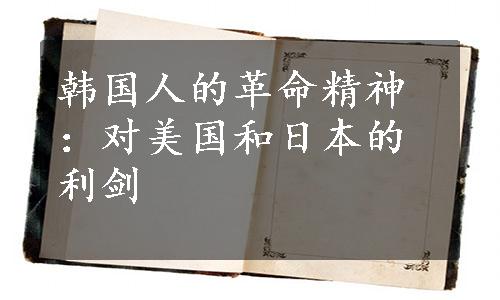 韩国人的革命精神
：对美国和日本的
利剑